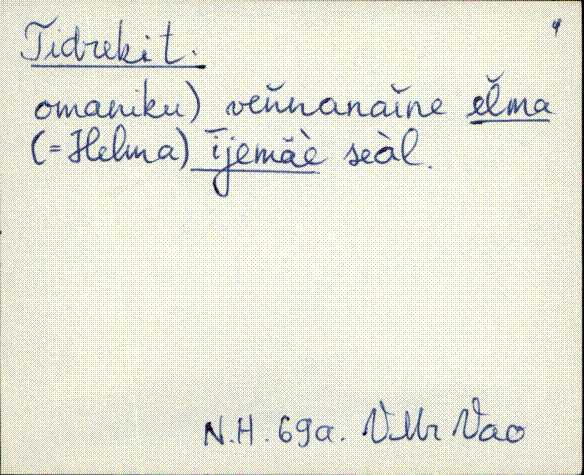 4
Tidrekit.
omaniku) veňnanaĭne eľma
(= Helma) ĭjemäè seàl.
N.H. 69a. VMr Vao